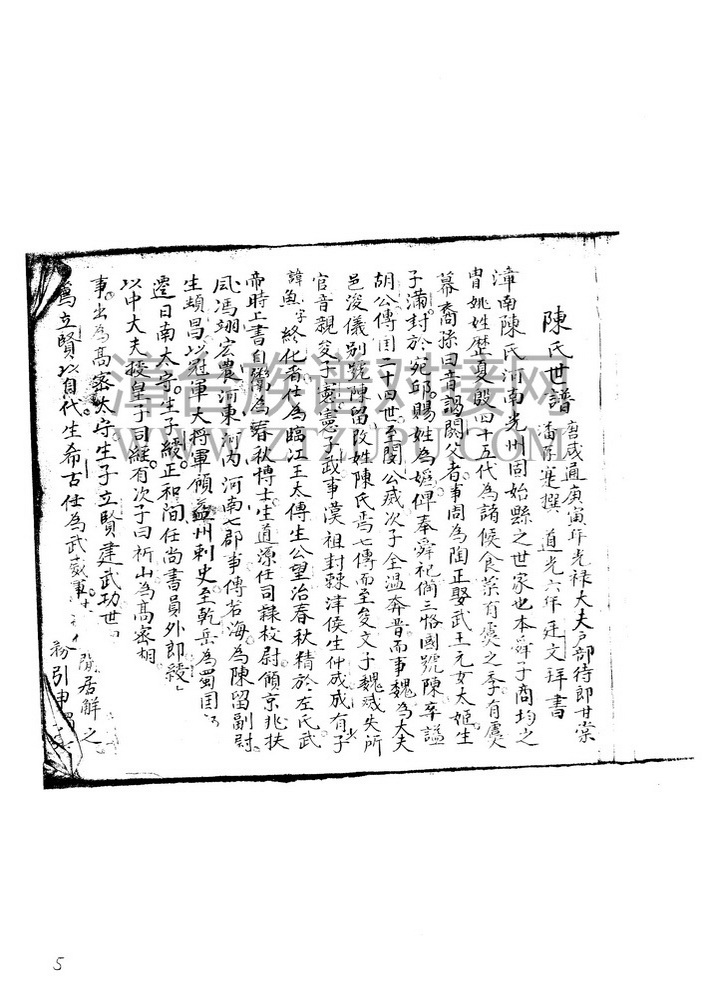 陳氏世譜
唐咸通庚寅年光禄大夫戶部待郎甘棠
潘存寔撰 道光六年廷文拜書
漳南陳氏河南光州固始縣之世家也本舜子商均之
胄姚姓歷夏殷四十五代為諸候食菜有虞之季有虞
幕裔孫曰音謁閼父者事周為陶正娶武王元女太姬生
子滿封於宛邱賜姓為媯俾奉舜祀備三恪國號陳卒謚
胡公傳国二十四世至閔公威次子全溫奔晋而事魏為大夫
邑浚儀別號陳留改姓陳氏焉七傳而至夋文子魏滅失所
官音親夋子憲憲子武事漢祖封棘津侯生仲成成有子
諱魚字終化者仕為臨江王太傳生公望治春秋精於左氏武
帝時上書自衞為春秋博士生道源任司隸校尉傾京兆扶
風馮翊宏農河東河內河南七郡事傳若海為陳留副尉
生頔昌以冠軍大将軍傾益州刺史至乾岳為蜀国
遷日南太守生子綬正和間任尚書員外郎綬
以中大夫授皇子司経有次子曰祈山為高密相
事出為高密太守生子立賢建武功世
篤立賢以自代生希古仕為武威軍
閒居解之
務引申
清台族谱对接网
WWW.ZTZUPU.COM
5